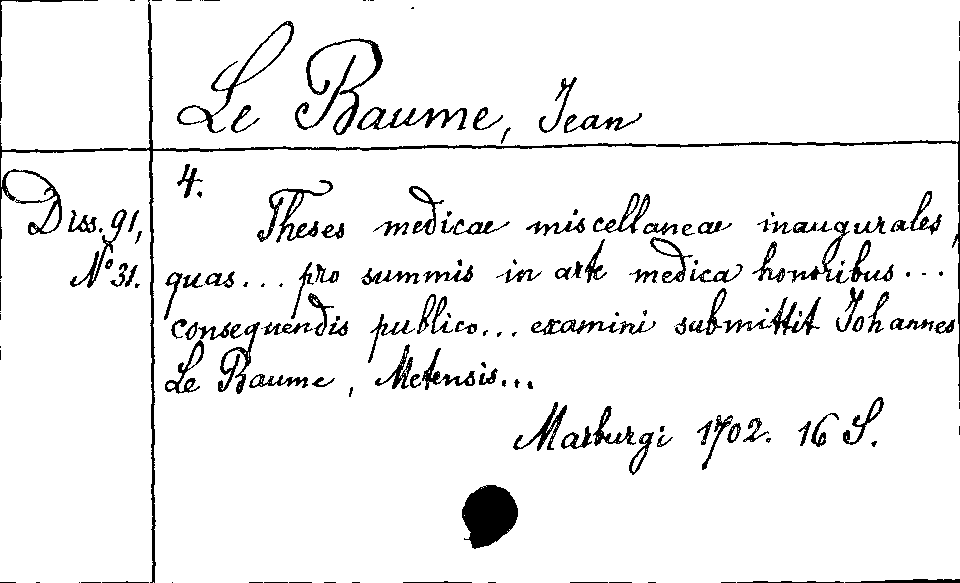 Le Baume, Jean
4.
Diss. 91,
N° 31.
Theses medicae miscellaneae inaugurales,
quas... pro summis in arte medica honoribus...
consequendis publico... examini submittit Johannes
Le Baume, Metensis...
Marburgi 1702. 16 S.